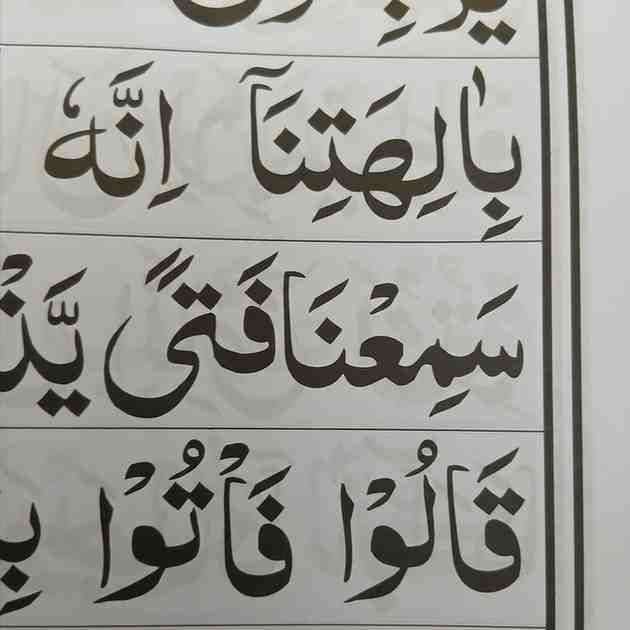 بِاٰلِهَتِنَاۤ اِنَّهٗ
سَمِعْنَا فَتًى
قَالُوْا فَاْتُوْا